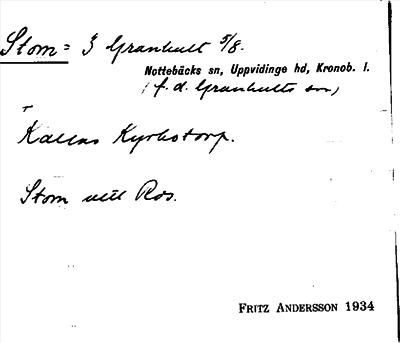 Stom = i Granhult 5/8.
Nottebäcks sn, Uppvidinge hd, Kronob. l.
(f. d. Granhults sn)
Kallas Kyrkotorp.
Stom vill Ros.
FRITZ ANDERSSON 1934